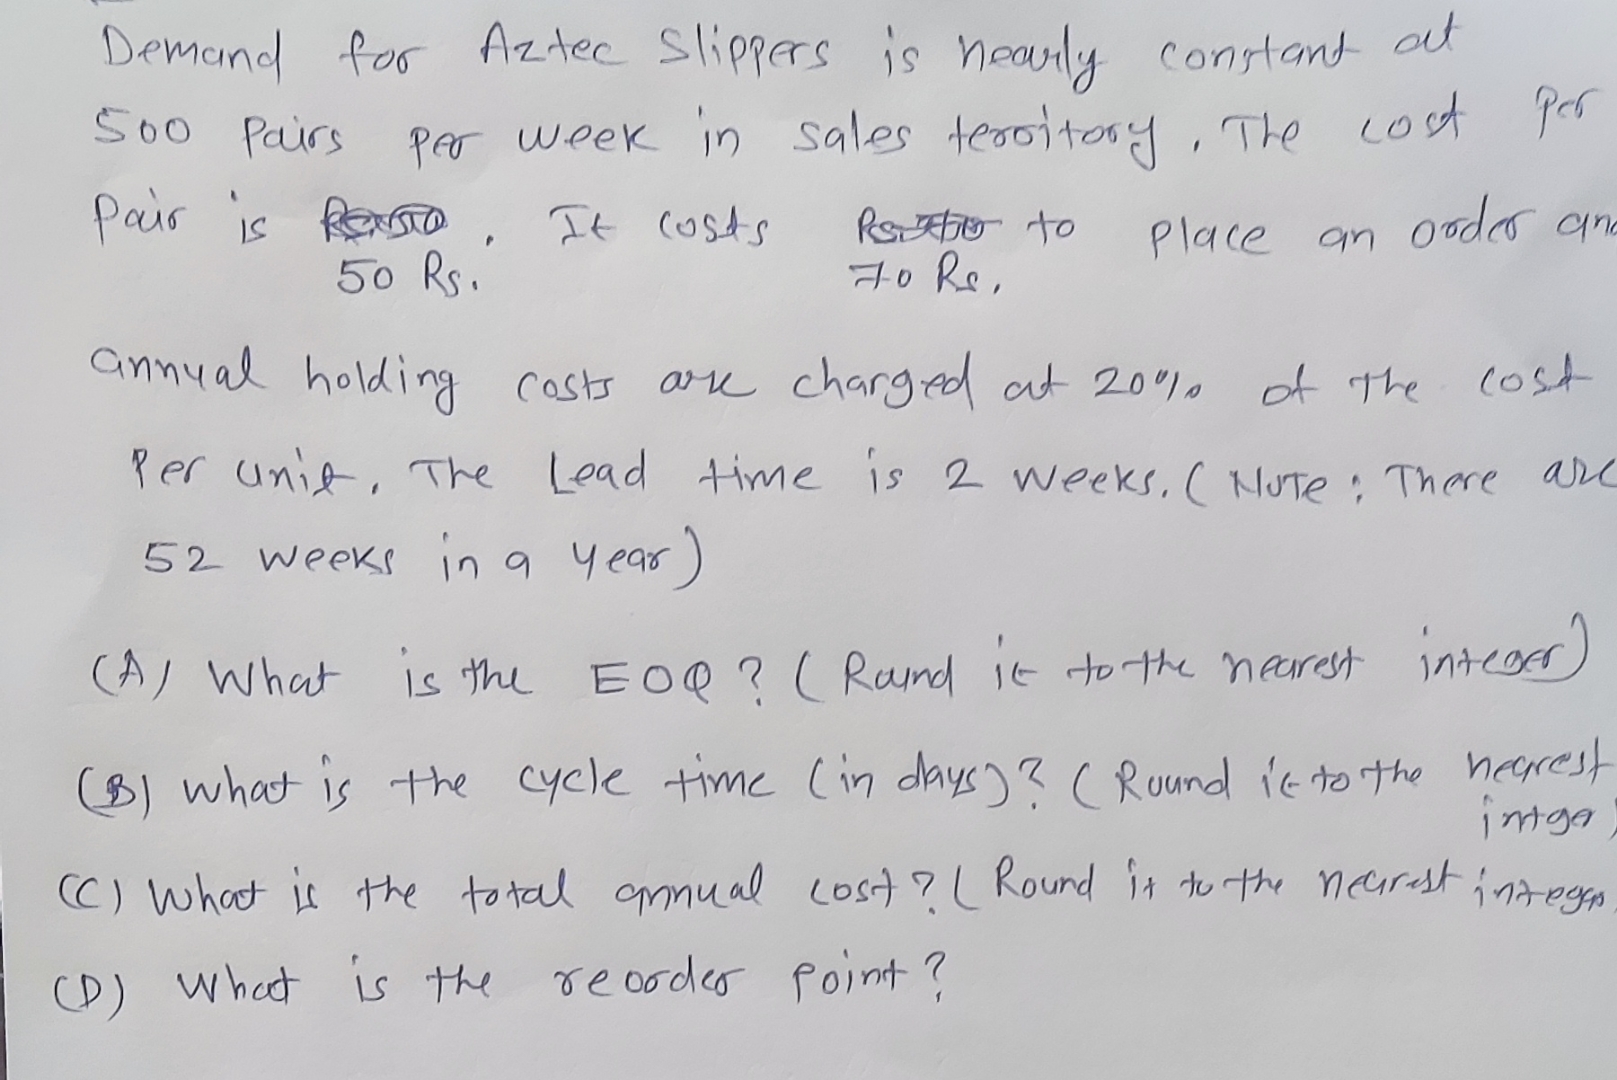 Demand for Aztec Slippers is nearly constant at
500 Pairs per week in sales territory. The cost per
Pair is . It costs to place an order and
50 Rs. 70 Rs.
annual holding costs are charged at 20% of the cost
Per unit. The Lead time is 2 weeks. (NOTE: There are
52 weeks in a year)
(A) What is the EOQ? (Round it to the nearest integer)
(B) what is the cycle time (in days)? (Round it to the nearest
intger)
(C) What is the total annual cost? (Round it to the nearest integer
(D) What is the reorder point?